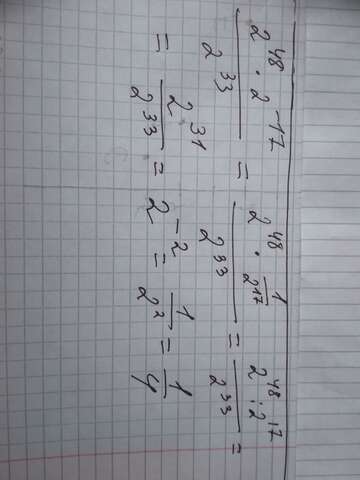 2^48 · 2^-17 / 2^33 = 2^48 · 1/2^17 / 2^33 = 2^48 : 2^17 / 2^33 =
= 2^31 / 2^33 = 2^-2 = 1/2^2 = 1/4